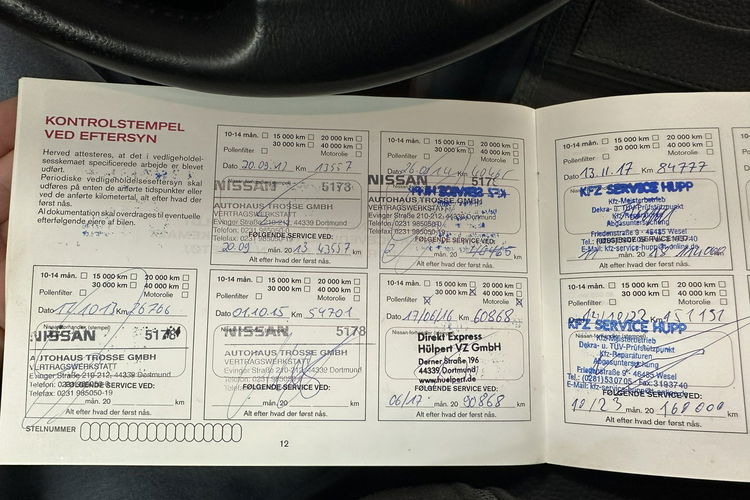 KONTROLSTEMPEL
VED EFTERSYN
Herved attesteres, at det i vedligeholdel-
sesskemaet specificerede arbejde er blevet
udført.
Periodiske vedligeholdelseseftersyn skal
udføres på enten de anførte tidspunkter eller
ved de anførte kilometertal, alt efter hvad der
først nås.
Al dokumentation skal overdrages til eventuelle
efterfølgende ejere af bilen.
10-14 mån. 15 000 km 20 000 km
30 000 km 40 000 km
Pollenfilter Motorolie
Dato 20.09.12 Km 13557
NISSAN 5178
AUTOHAUS TROSSE GMBH
VERTRAGSWERKSTATT
Evinger Straße 210-212, 44339 Dortmund
Telefon: 0231 985050-0
FØLGENDE SERVICE VED:
20.09 mån. 20 13 43557 km
Alt efter hvad der først nås.
10-14 mån. 15 000 km 20 000 km
30 000 km 40 000 km
Pollenfilter Motorolie
Dato Km
NISSAN 5178
AUTOHAUS TROSSE GMBH
VERTRAGSWERKSTATT
Evinger Straße 210-212, 44339 Dortmund
FØLGENDE SERVICE VED:
mån. 20 km
Alt efter hvad der først nås.
10-14 mån. 15 000 km 20 000 km
30 000 km 40 000 km
Pollenfilter Motorolie
Dato 13.11.17 Km 84777
KFZ SERVICE HUPP
Kfz-Meisterbetrieb
Dekra- u. TÜV-Prüfstützpunkt
Kfz-Reparaturen
Abgasuntersuchung
Friedenstraße 9 · 46485 Wesel
FØLGENDE SERVICE VED:
E-Mail: kfz-service-hupp@online.de
11 mån. 20 18 km
Alt efter hvad der først nås.
10-14 mån. 15 000 km 20 000 km
30 000 km 40 000 km
Pollenfilter Motorolie
Dato 17.10.13 Km 26766
NISSAN 5178
AUTOHAUS TROSSE GMBH
VERTRAGSWERKSTATT
Evinger Straße 210-212, 44339 Dortmund
Telefon: 0231 985050-0
Telefax: 0231 985050-19
FØLGENDE SERVICE VED:
mån. 20 km
Alt efter hvad der først nås.
10-14 mån. 15 000 km 20 000 km
30 000 km 40 000 km
Pollenfilter Motorolie
Dato 01.10.15 Km 54701
NISSAN 5178
AUTOHAUS TROSSE GMBH
VERTRAGSWERKSTATT
Evinger Straße 210-212, 44339 Dortmund
FØLGENDE SERVICE VED:
mån. 20 km
Alt efter hvad der først nås.
10-14 mån. 15 000 km 20 000 km
30 000 km 40 000 km
Pollenfilter Motorolie
Dato 17/06/16 Km 60868
Direkt Express
Hülpert VZ GmbH
Derner Straße 196
44339 Dortmund
www.huelpert.de
FØLGENDE SERVICE VED:
06/17 mån. 20 90868 km
Alt efter hvad der først nås.
10-14 mån. 15 000 km 20 000 km
30 000 km 40 000 km
Pollenfilter Motorolie
Dato Km 151151
KFZ SERVICE HUPP
Kfz-Meisterbetrieb
Dekra- u. TÜV-Prüfstützpunkt
Kfz-Reparaturen
Abgasuntersuchung
Friedenstraße 9 · 46485 Wesel
Tel.: (0281) 53 07 05 · Fax: 3 19 37 40
FØLGENDE SERVICE VED:
10/23 mån. 20 160 000 km
Alt efter hvad der først nås.
STELNUMMER
12